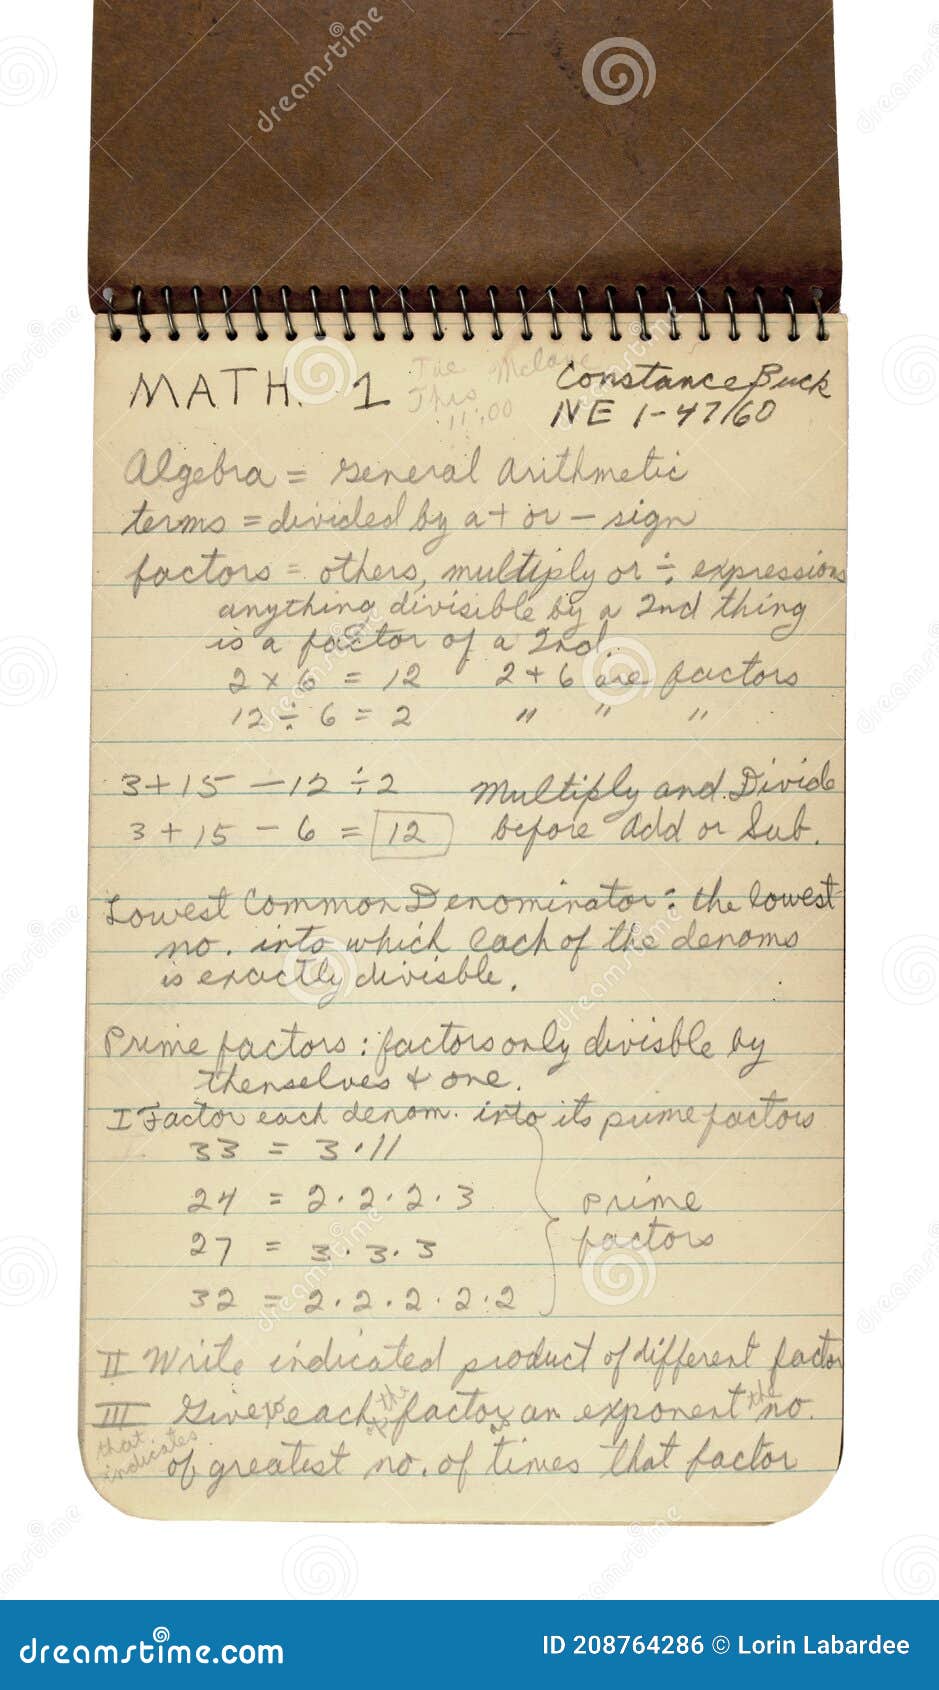 MATH. 1
Constance Buck
NE 1-4760
11:00
Algebra = General Arithmetic
terms = divided by a + or - sign
factors = others, multiply or ÷, expressions
anything divisible by a 2nd thing
is a factor of a 2nd.
2 x 6 = 12 2 + 6 are factors
12 ÷ 6 = 2 " " "
3 + 15 - 12 ÷ 2 Multiply and Divide
3 + 15 - 6 = 12 before Add or Sub.
Lowest Common Denominator: the lowest
no. into which each of the denoms
is exactly divisble.
Prime factors: factors only divisble by
themselves + one.
I Factor each denom. into its prime factors
33 = 3·11
24 = 2·2·2·3 prime
27 = 3·3·3 factors
32 = 2·2·2·2·2
II Write indicated product of different factor
III Give each of the factor an exponent the no.
that indicates
of greatest no. of times that factor
dreamstime.com
ID 208764286 © Lorin Labardee